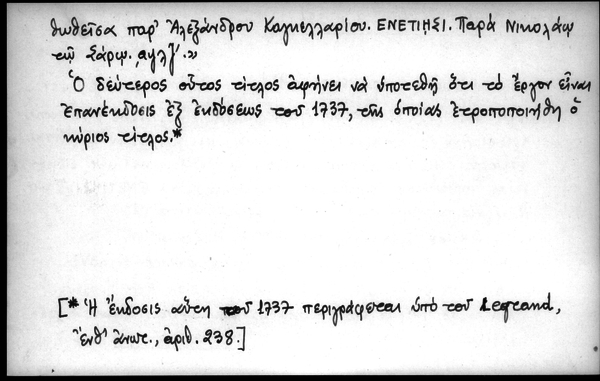 θωθεῖσα παρ' Ἀλεξάνδρου Καγκελλαρίου. ΕΝΕΤΙῌΣΙ. Παρὰ Νικολάῳ
τῷ Σάρῳ. ͵αψλζʹ.»
Ὁ δεύτερος οὗτος τίτλος ἀφήνει νὰ ὑποτεθῇ ὅτι τὸ ἔργον εἶναι
ἐπανέκδοσις ἐξ ἐκδόσεως τοῦ 1737, τῆς ὁποίας ἐτροποποιήθη ὁ
κύριος τίτλος.*
[* Ἡ ἔκδοσις αὕτη τοῦ 1737 περιγράφεται ὑπὸ τοῦ Legrand,
ἔνθ' ἀνωτ., ἀριθ. 238.]